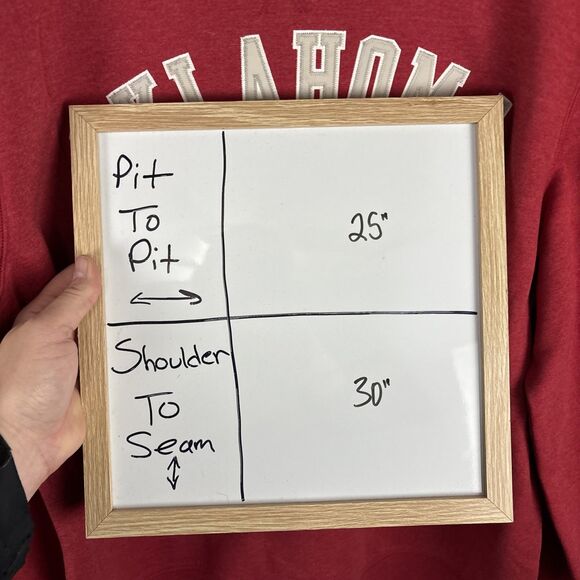 OKLAHOM
Pit
To
Pit
25"
Shoulder
To
Seam
30"